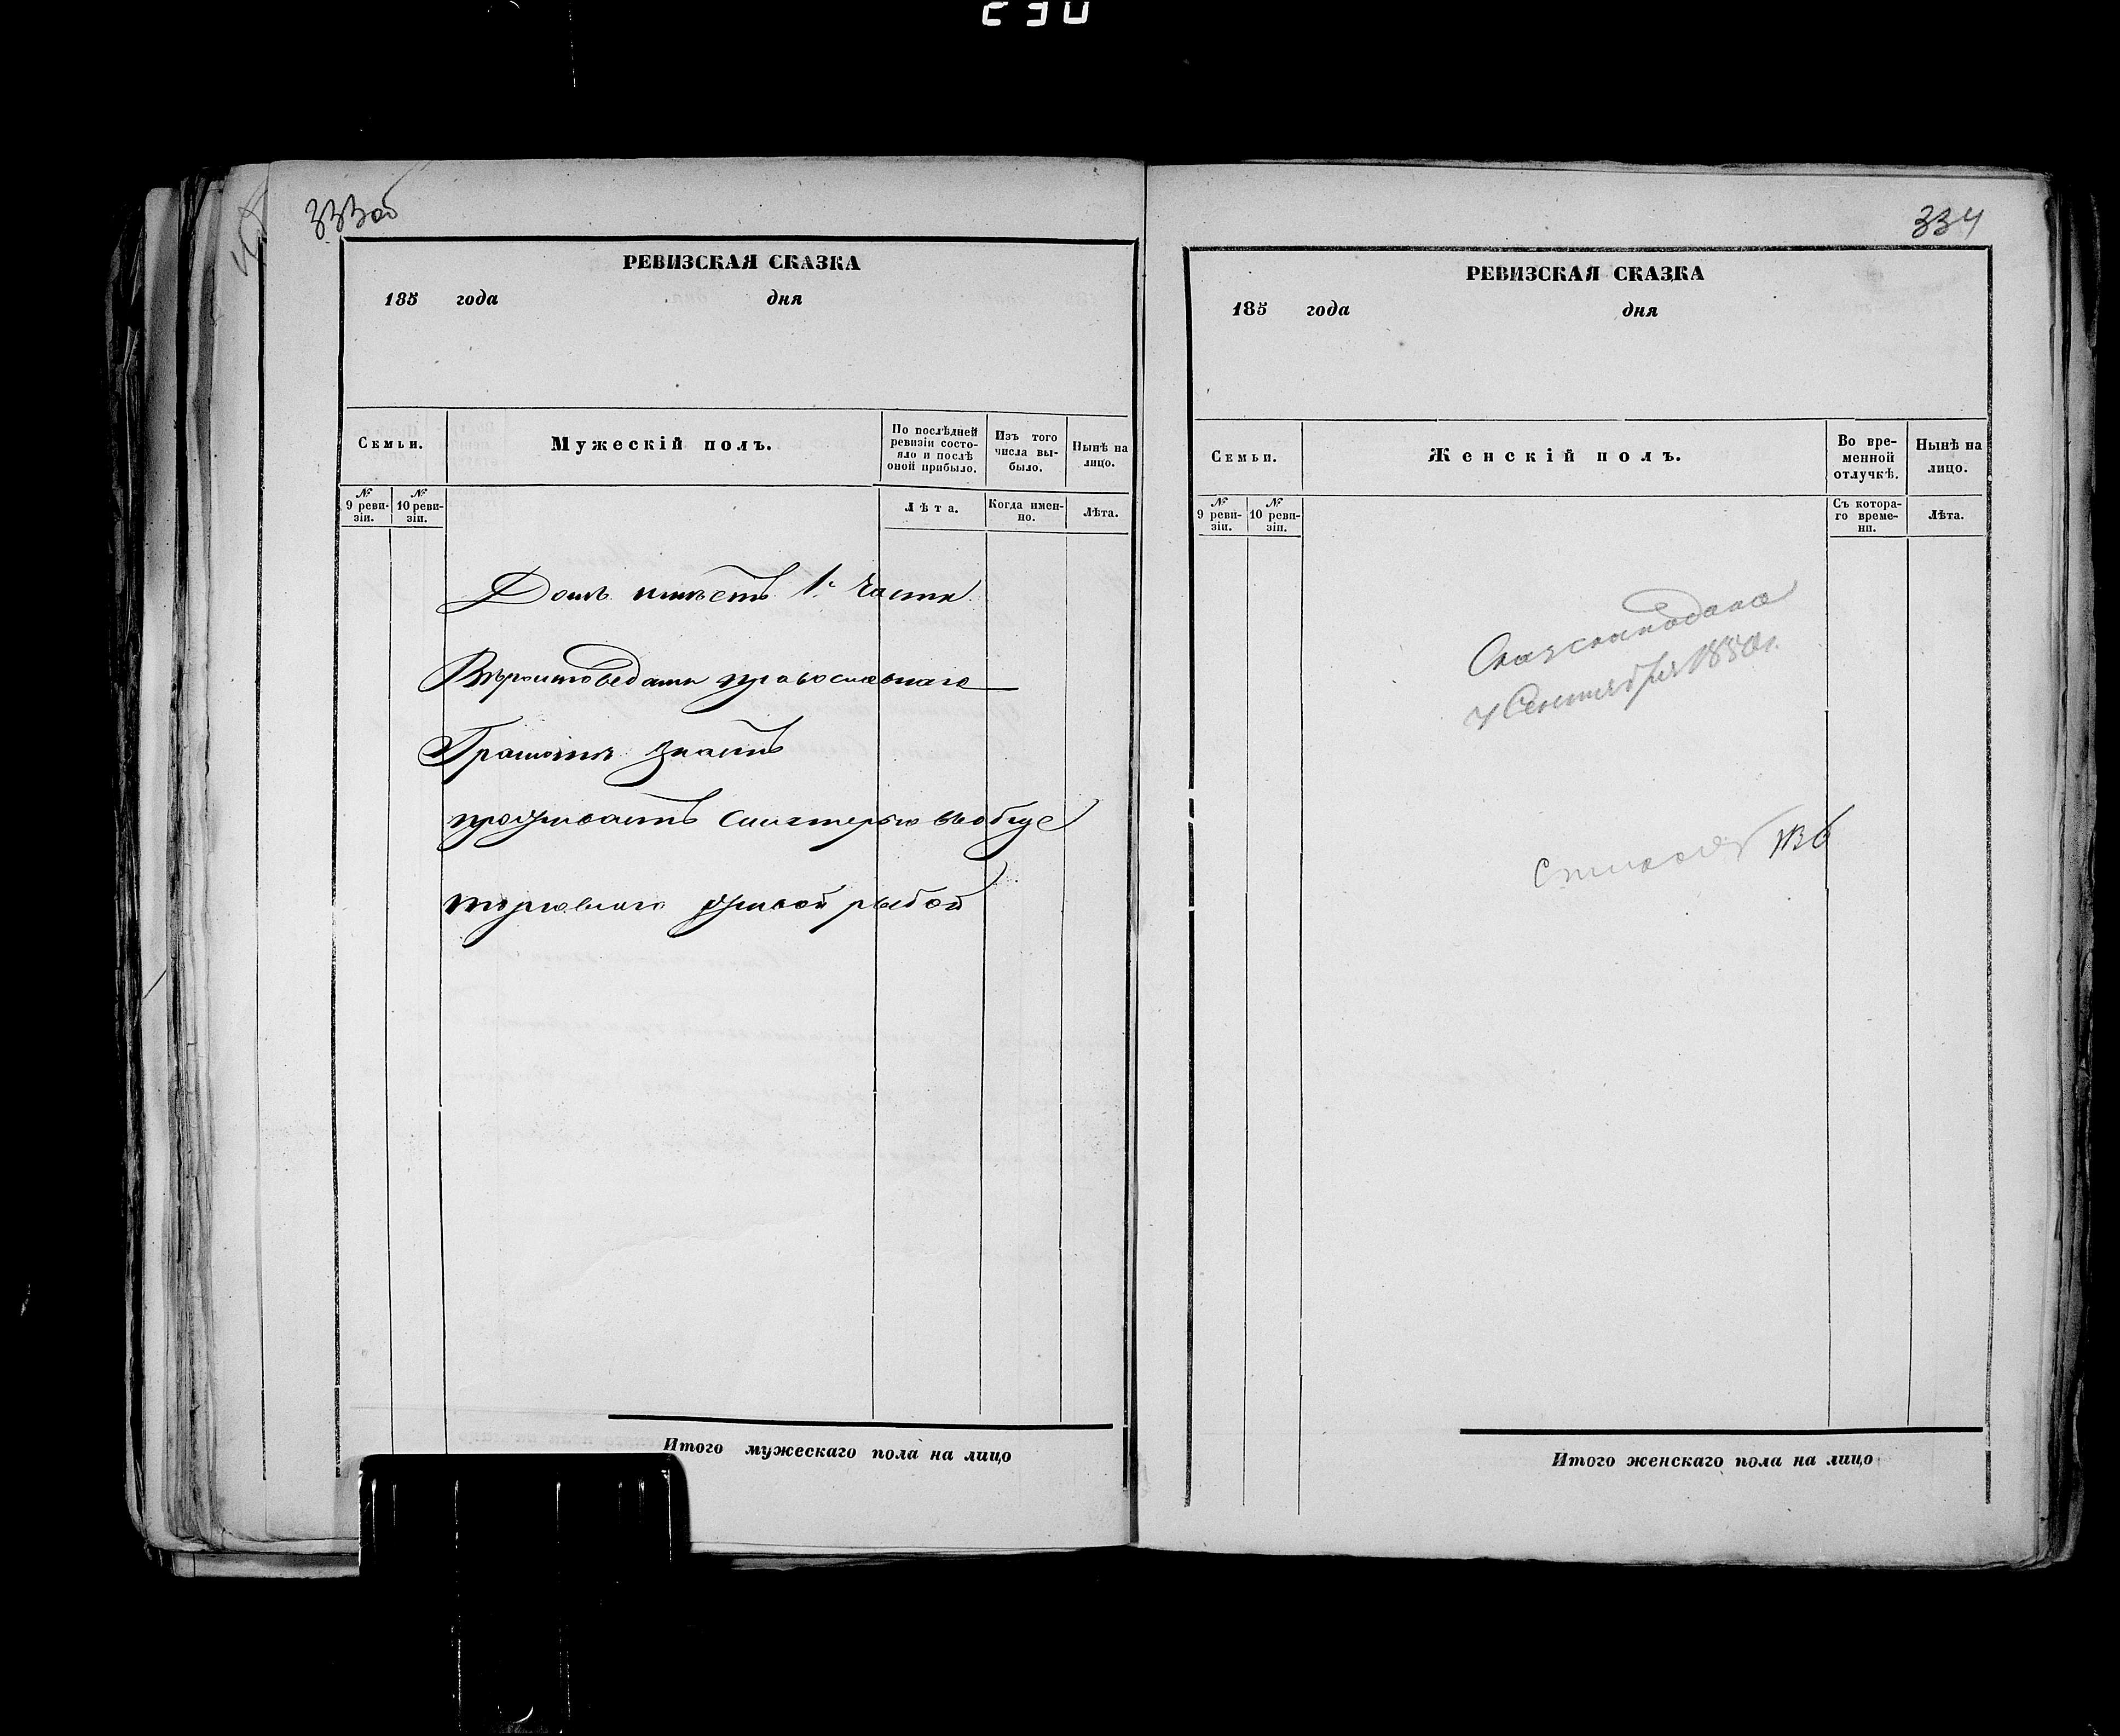 230
333об
РЕВИЗСКАЯ СКАЗКА
185 года дня
Семьи.
Мужескій полъ.
По послѣдней ревизіи состо-
яло и послѣ
оной прибыло.
Изъ того
числа вы-
было.
Нынѣ на
лицо.
№
9 реви-
зіи.
№
10 реви-
зіи.
Лѣта.
Когда имен-
но.
Лѣта.
Домъ имѣетъ 1й части
Вѣроисповеданія православнаго
Грамотѣ знаетъ
проживаетъ вобще
торговлею живой рыбой
Итого мужескаго пола на лицо
334
РЕВИЗСКАЯ СКАЗКА
185 года дня
Семьи.
Женскій полъ.
Во вре-
менной
отлучкѣ.
Нынѣ на
лицо.
№
9 реви-
зіи.
№
10 реви-
зіи.
Съ котора-
го време-
ни.
Лѣта.
Сентября 1850г.
Итого женскаго пола на лицо